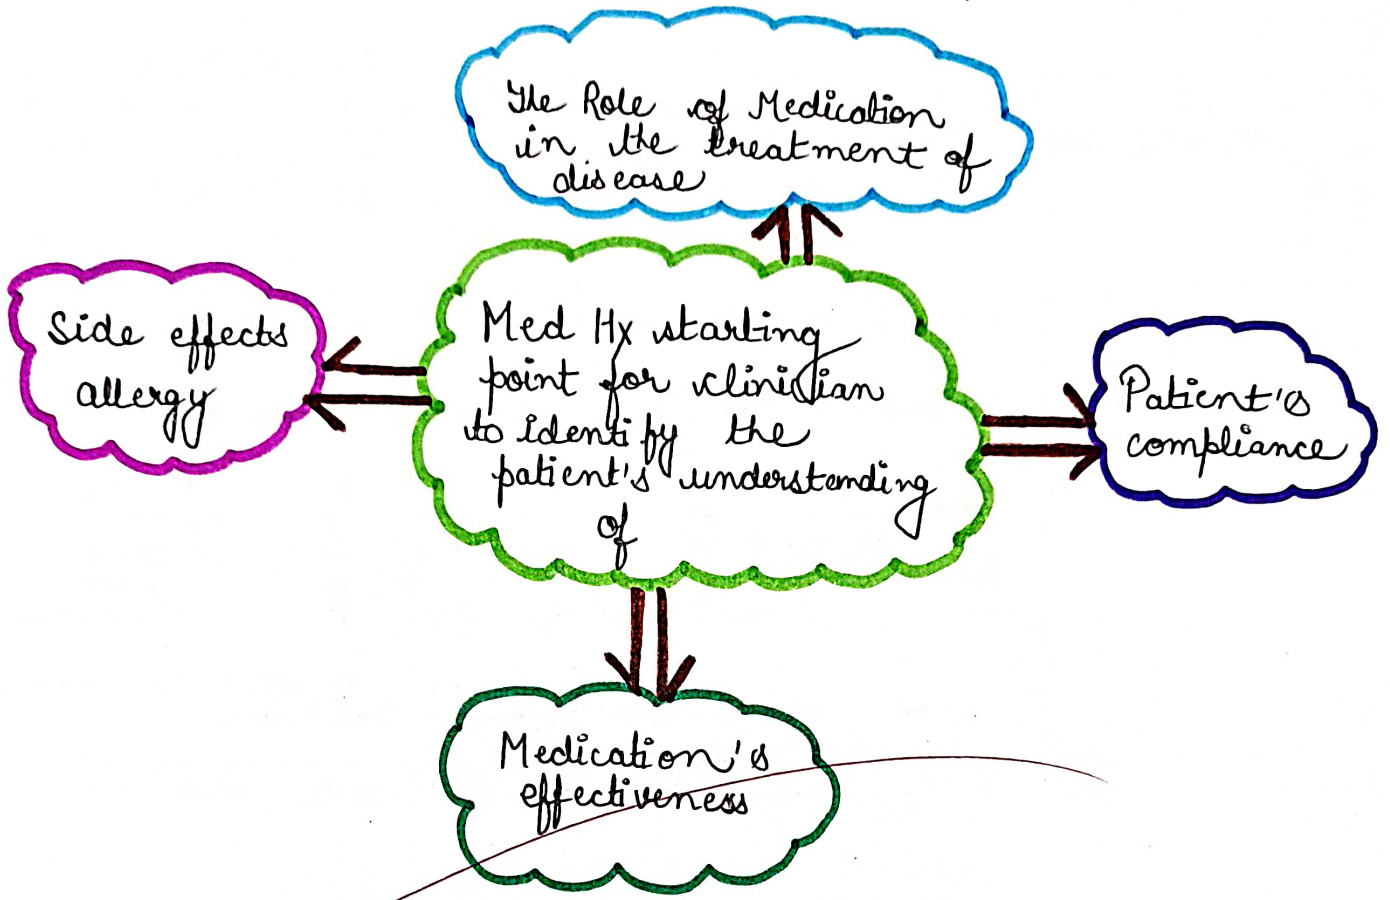 The Role of Medication
in the treatment of
disease
Side effects
allergy
Med Hx starting
point for clinician
to identify the
patient's understanding
of
Patient's
compliance
Medication's
effectiveness